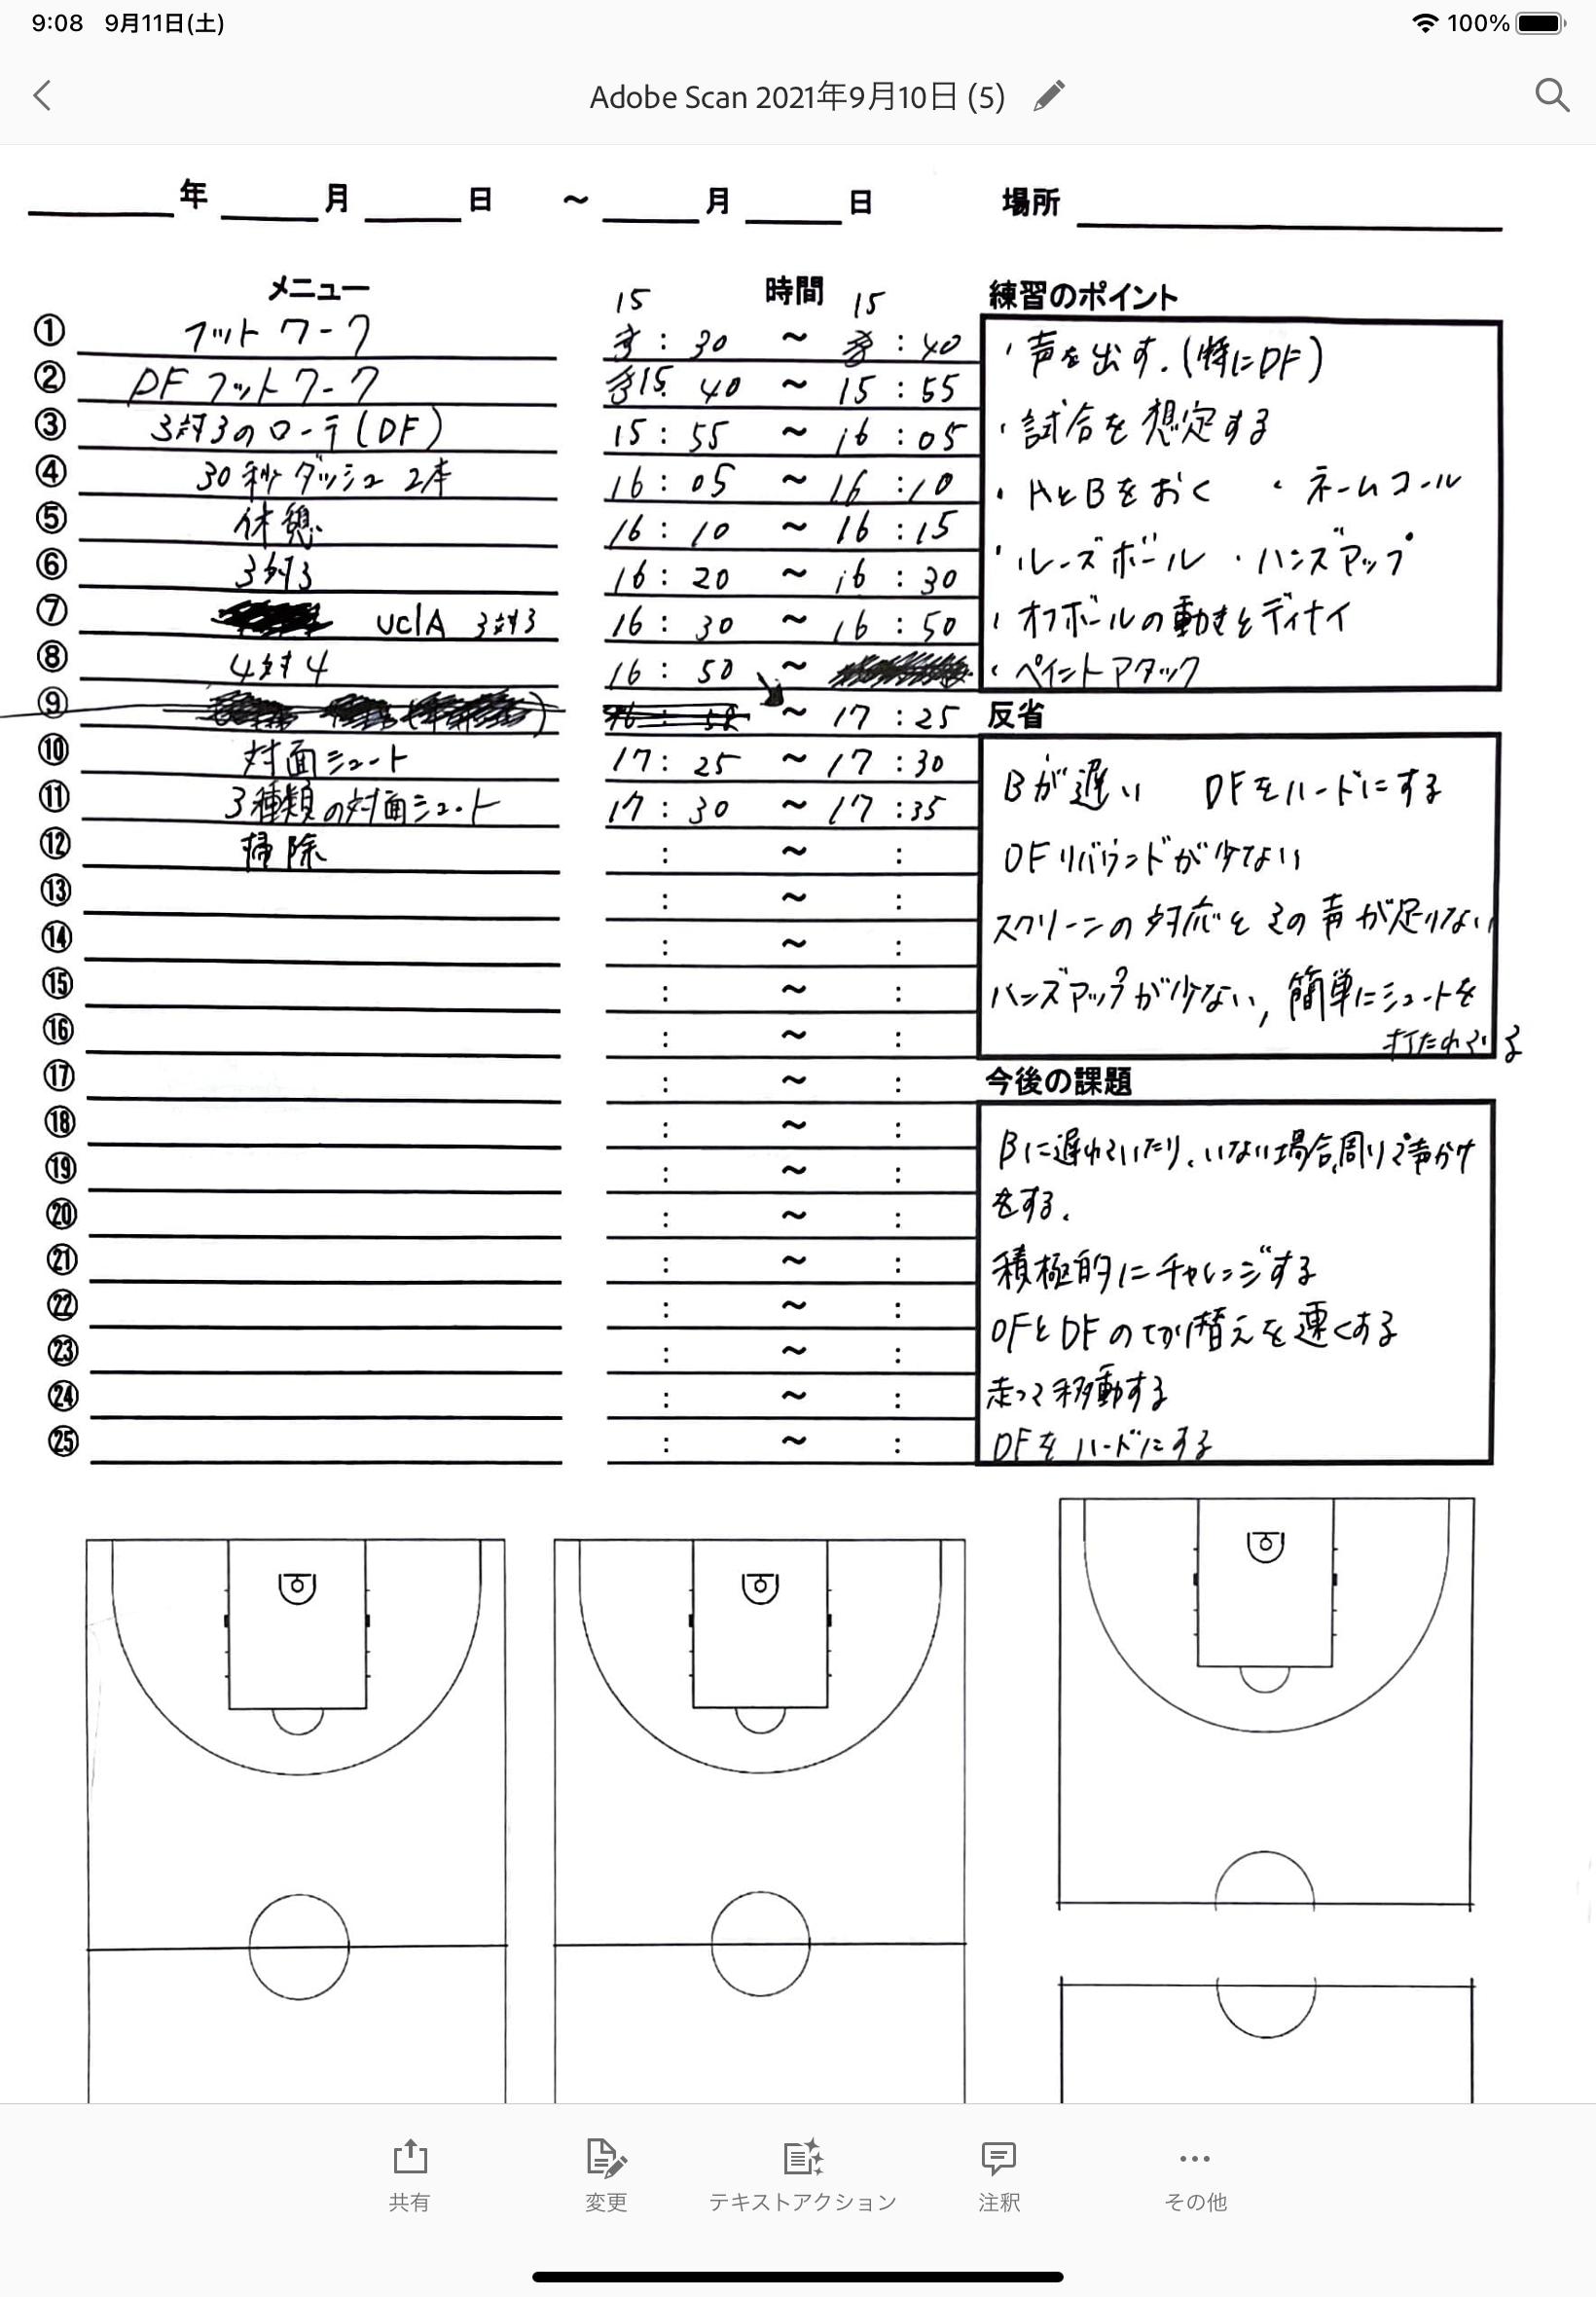 9:08 9月11日(土) 100%
Adobe Scan 2021年9月10日 (5)
年 月 日 ～ 月 日 場所
メニュー 時間
① フットワーク 15:30 ～ 15:40
② DFフットワーク 15:40 ～ 15:55
③ 3対3のローテ(DF) 15:55 ～ 16:05
④ 30秒ダッシュ 2本 16:05 ～ 16:10
⑤ 休憩 16:10 ～ 16:15
⑥ 3対3 16:20 ～ 16:30
⑦ UCLA 3対3 16:30 ～ 16:50
⑧ 4対4 16:50 ～
⑨ ～ 17:25
⑩ 対面シュート 17:25 ～ 17:30
⑪ 3種類の対面シュート 17:30 ～ 17:35
⑫ 掃除 : ～ :
⑬ : ～ :
⑭ : ～ :
⑮ : ～ :
⑯ : ～ :
⑰ : ～ :
⑱ : ～ :
⑲ : ～ :
⑳ : ～ :
㉑ : ～ :
㉒ : ～ :
㉓ : ～ :
㉔ : ～ :
㉕ : ～ :
練習のポイント
・声を出す.(特にDF)
・試合を想定する
・AとBをおく ・ネームコール
・ルーズボール ・ハンズアップ
・オフボールの動きとディナイ
・ペイントアタック
反省
Bが遅い DFをハードにする
OFリバウンドが少ない
スクリーンの対応とその声が足りない
ハンズアップが少ない, 簡単にシュートを
打たれてる
今後の課題
Bに遅れていたり、いない場合、周りで声かけ
をする.
積極的にチャレンジする
OFとDFの切り替えを速くする
走って移動する
DFをハードにする
共有 変更 テキストアクション 注釈 その他